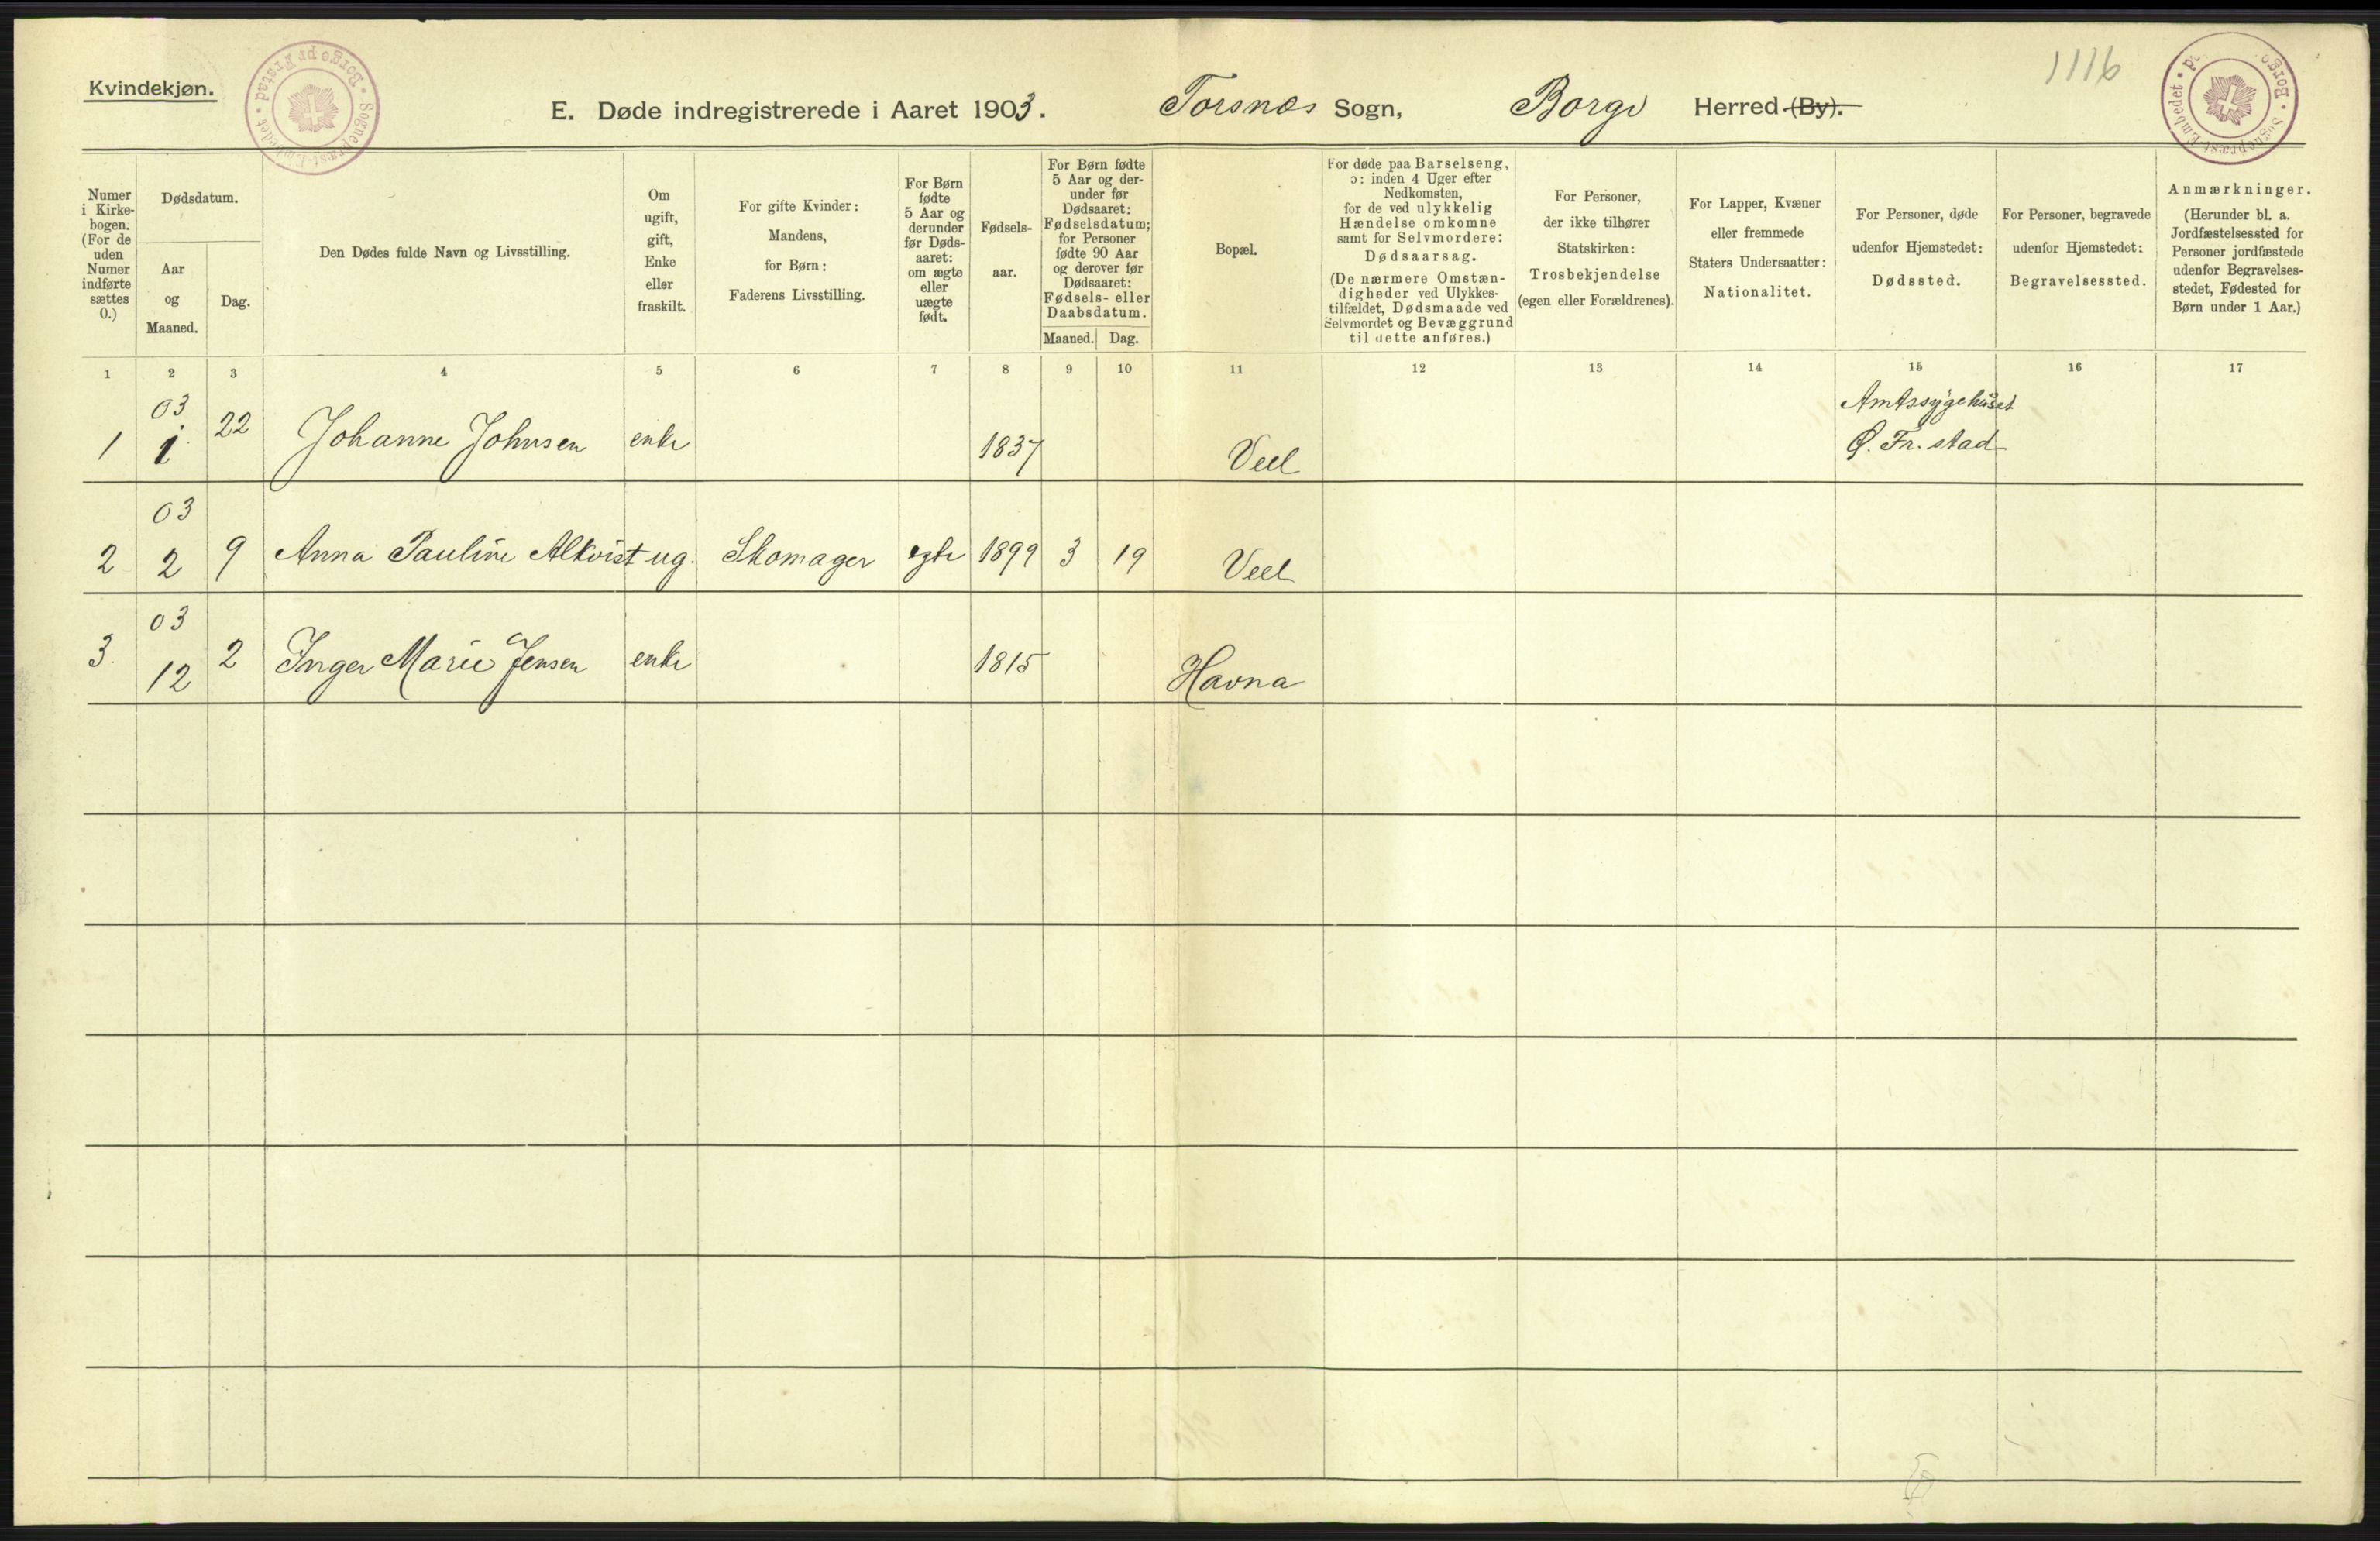 Kvindekjøn.
Sognepræst-Embedet • Borge pr Frstad •
E. Døde indregistrerede i Aaret 1903. Torsnæs Sogn, Borge Herred (By).
1116
Numer i Kirke-bogen. (For de uden Numer indførte sættes 0.)
Dødsdatum.
Aar og Maaned.
Dag.
Den Dødes fulde Navn og Livsstilling.
Om ugift, gift, Enke eller fraskilt.
For gifte Kvinder: Mandens, for Børn: Faderens Livsstilling.
For Børn fødte 5 Aar og derunder før Døds-aaret: om ægte eller uægte født.
Fødsels-aar.
For Børn fødte 5 Aar og der-under før Dødsaaret: Fødselsdatum; for Personer fødte 90 Aar og derover før Dødsaaret: Fødsels- eller Daabsdatum.
Maaned. Dag.
Bopæl.
For døde paa Barselseng, ɔ: inden 4 Uger efter Nedkomsten, for de ved ulykkelig Hændelse omkomne samt for Selvmordere: Dødsaarsag. (De nærmere Omstæn-digheder ved Ulykkes-tilfældet, Dødsmaade ved Selvmordet og Bevæggrund til dette anføres.)
For Personer, der ikke tilhører Statskirken: Trosbekjendelse (egen eller Forældrenes).
For Lapper, Kvæner eller fremmede Staters Undersaatter: Nationalitet.
For Personer, døde udenfor Hjemstedet: Dødssted.
For Personer, begravede udenfor Hjemstedet: Begravelsessted.
Anmærkninger. (Herunder bl. a. Jordfæstelsessted for Personer jordfæstede udenfor Begravelses-stedet, Fødested for Børn under 1 Aar.)
1 2 3 4 5 6 7 8 9 10 11 12 13 14 15 16 17
1 03 1 22 Johanne Johnsen enke 1837 Veel Amtssygehuset Ø. Fr. stad
2 03 2 9 Anna Pauline Alkvist ug. Skomager egte 1899 3 19 Veel
3. 03 12 2 Inger Marie Jensen enke 1815 Havna